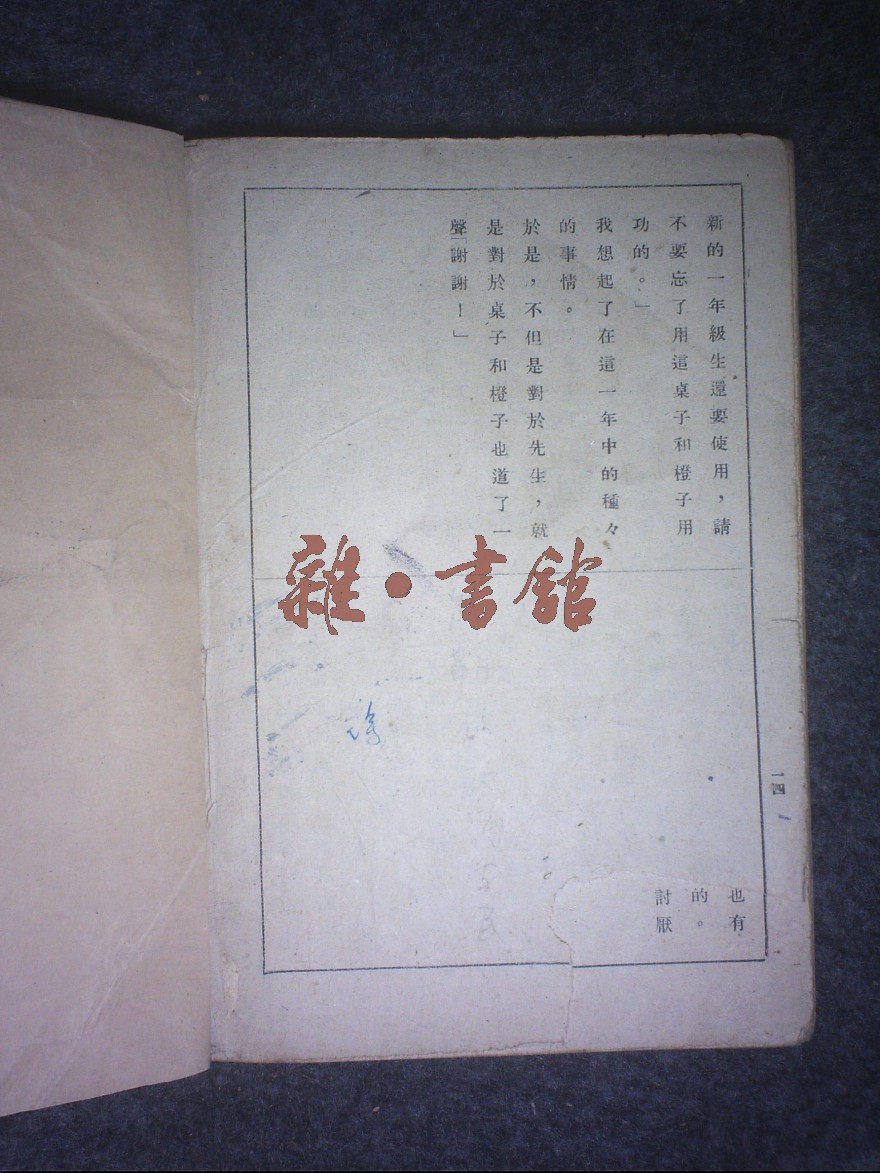 新的一年級生還要使用，請
不要忘了用這桌子和橙子用
功的。」
我想起了在這一年中的種々
的事情。
於是，不但是對於先生，就
是對於桌子和橙子也道了一
聲「謝謝！」
一四
也有
的。
討厭
雜•書館